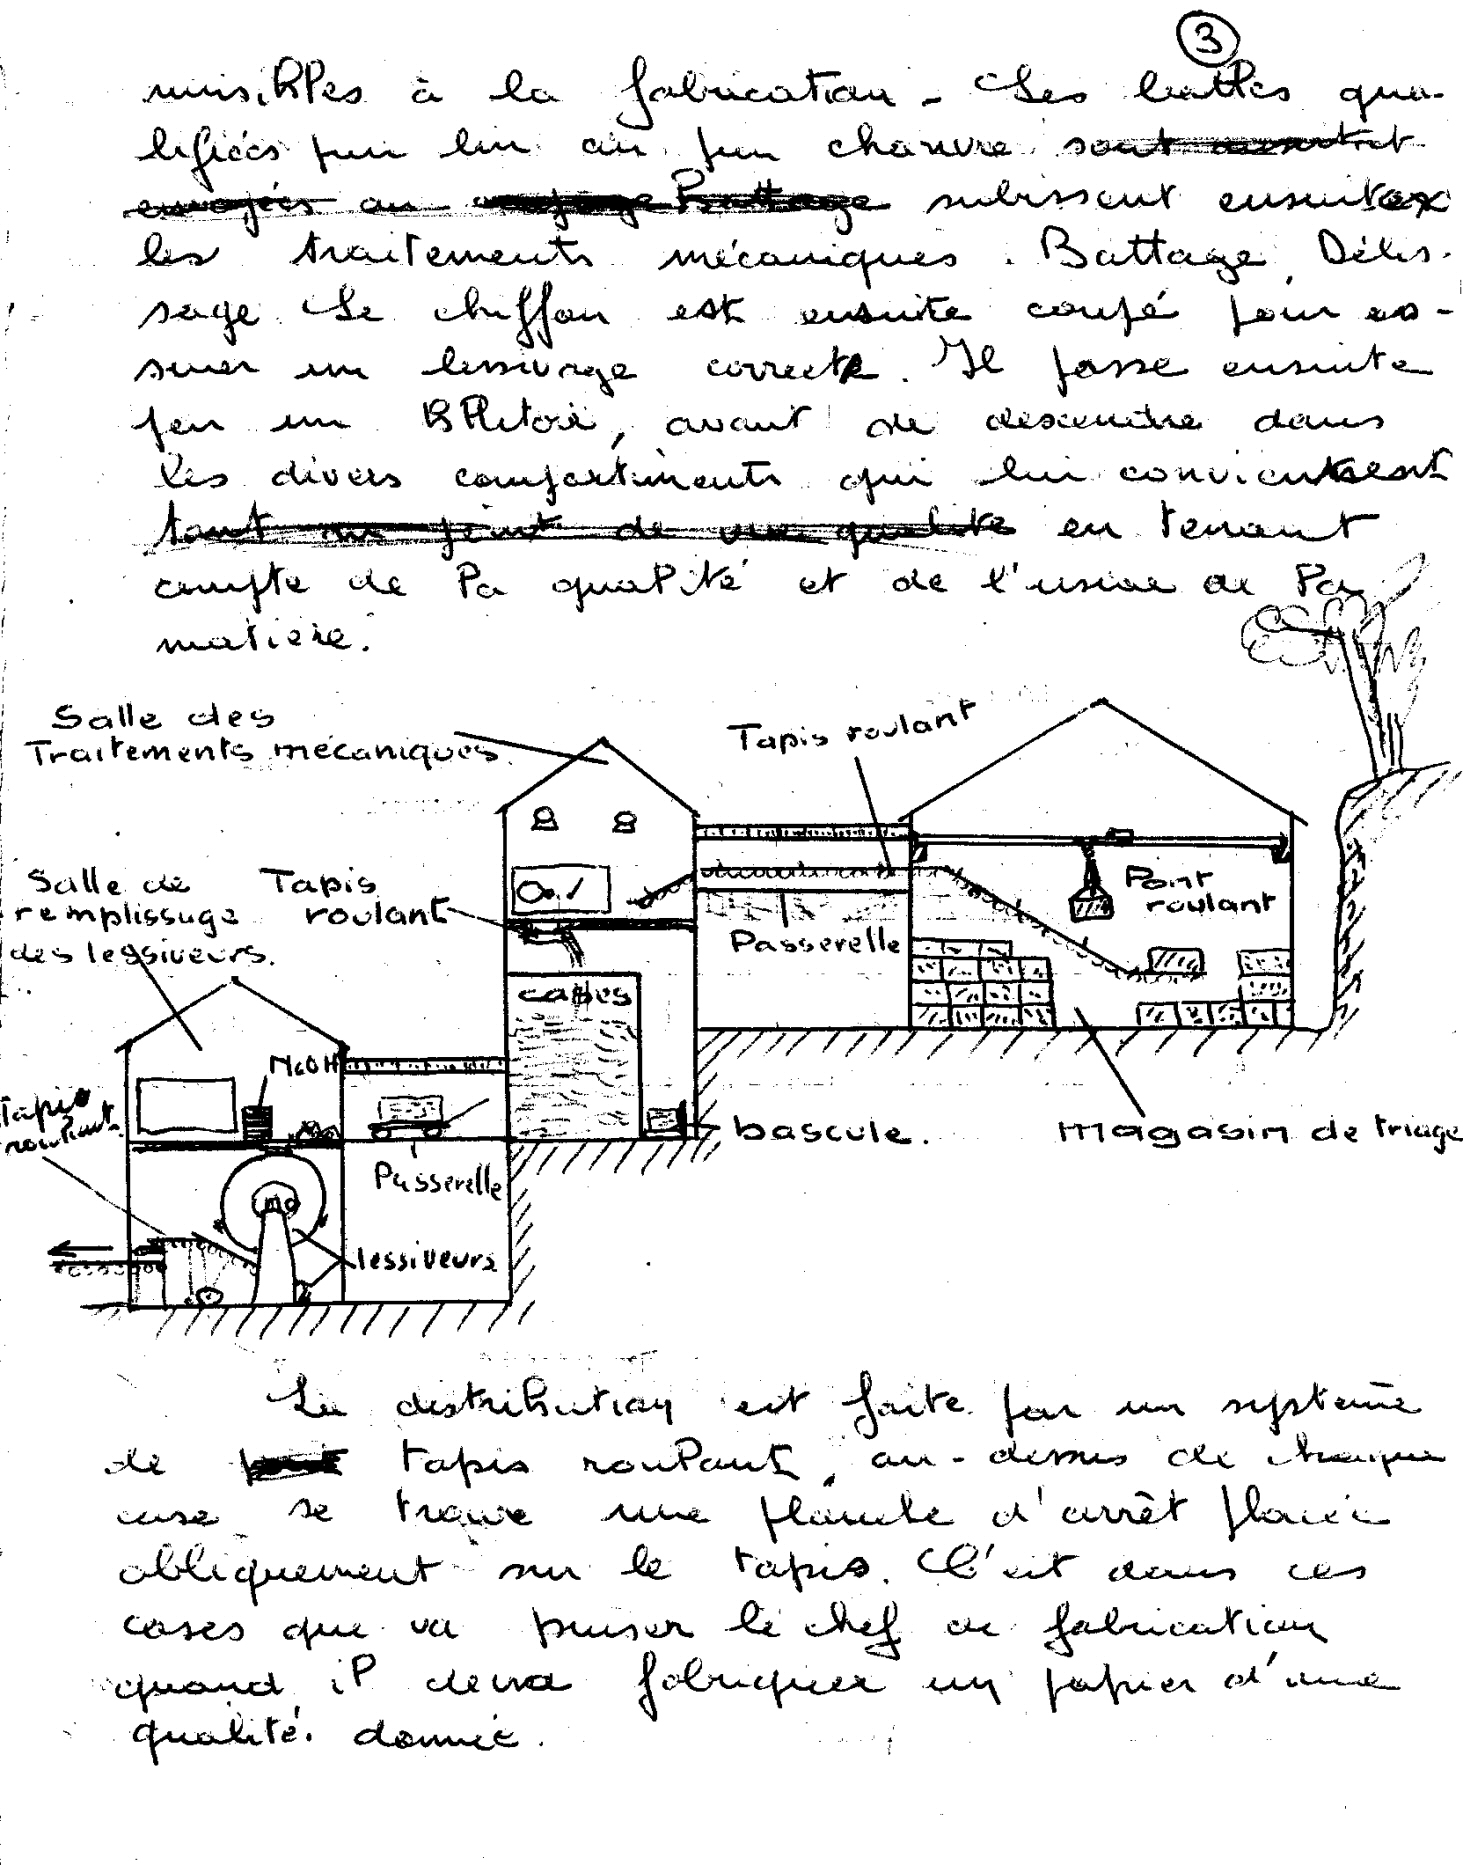 3
nuisibles à la fabrication. Les balles qua-
lifiées pur lin ou pur chanvre sont
envoyées au Battage subissent ensuite
les traitements mécaniques. Battage, Délis-
sage. Le chiffon est ensuite coupé pour as-
surer un lessivage correct. Il passe ensuite
par un Blutoir, avant de descendre dans
les divers compartiments qui lui conviennent
tant au point de vue qualité en tenant
compte de la qualité et de l'usure de la
matière.
Salle des
Traitements mécaniques.
Tapis roulant
Salle de
remplissage
des lessiveurs.
Tapis
roulant
Pont
roulant
Passerelle
cases
NaOH
Tapis
roulant.
bascule.
magasin de triage
Passerelle
lessiveurs
La distribution est faite par un système
de tapis roulant, au-dessus de chaque
case se trouve une planche d'arrêt placée
obliquement sur le tapis. C'est dans ces
cases que va puiser le chef de fabrication
quand il devra fabriquer un papier d'une
qualité donnée.